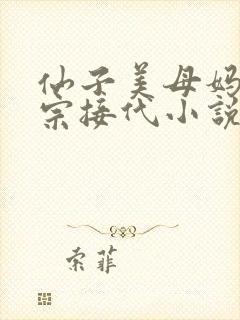 仙子美母妈
宗接代小說
索菲